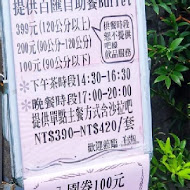 提供百匯自助餐Buffet
399元(120公分以上)
200元(90公分-120公分)
100元(90公分以下)
供餐時段
恕不提供
吧檯
飲品服務
*下午茶時段14:30-16:30
*晚餐時段17:00-20:00
提供單點主餐方式含沙拉吧
NT$390-NT$420/套
歡迎蒞臨
圍券100元